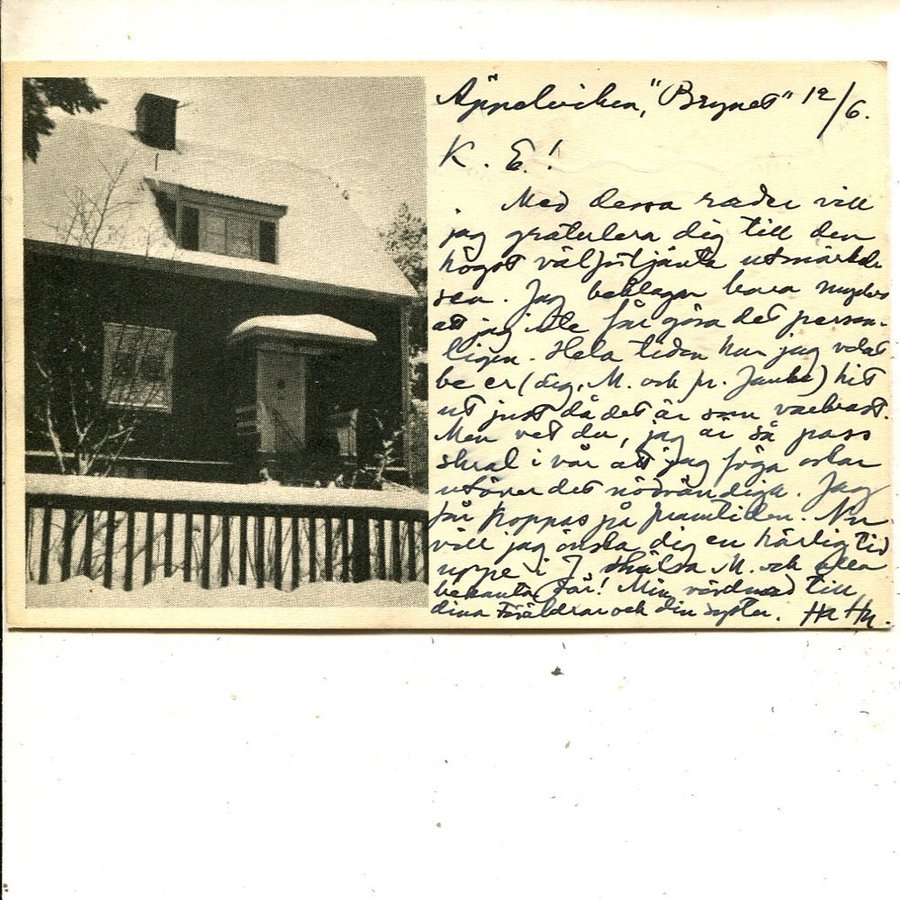 Äppelviken, "Brynet" 12/6.
K. E.!
Med dessa rader vill
jag gratulera dig till den
högst välförtjänta utmärkel
sen. Jag beklagar bara mycket
att jag inte får göra det person-
ligen. Hela tiden har jag velat
be er (dig, M. och fr. ) hit
ut just då det är som vackrast.
Men vet du, jag är så pass
skral i vår att jag föga orkar
utöver det nödvändiga. Jag
får hoppas på framtiden. Nu
vill jag önska dig en härlig tid
uppe i J. Hälsa M. och alla
bekanta där! Min vördnad till
dina Föräldrar och din syster.